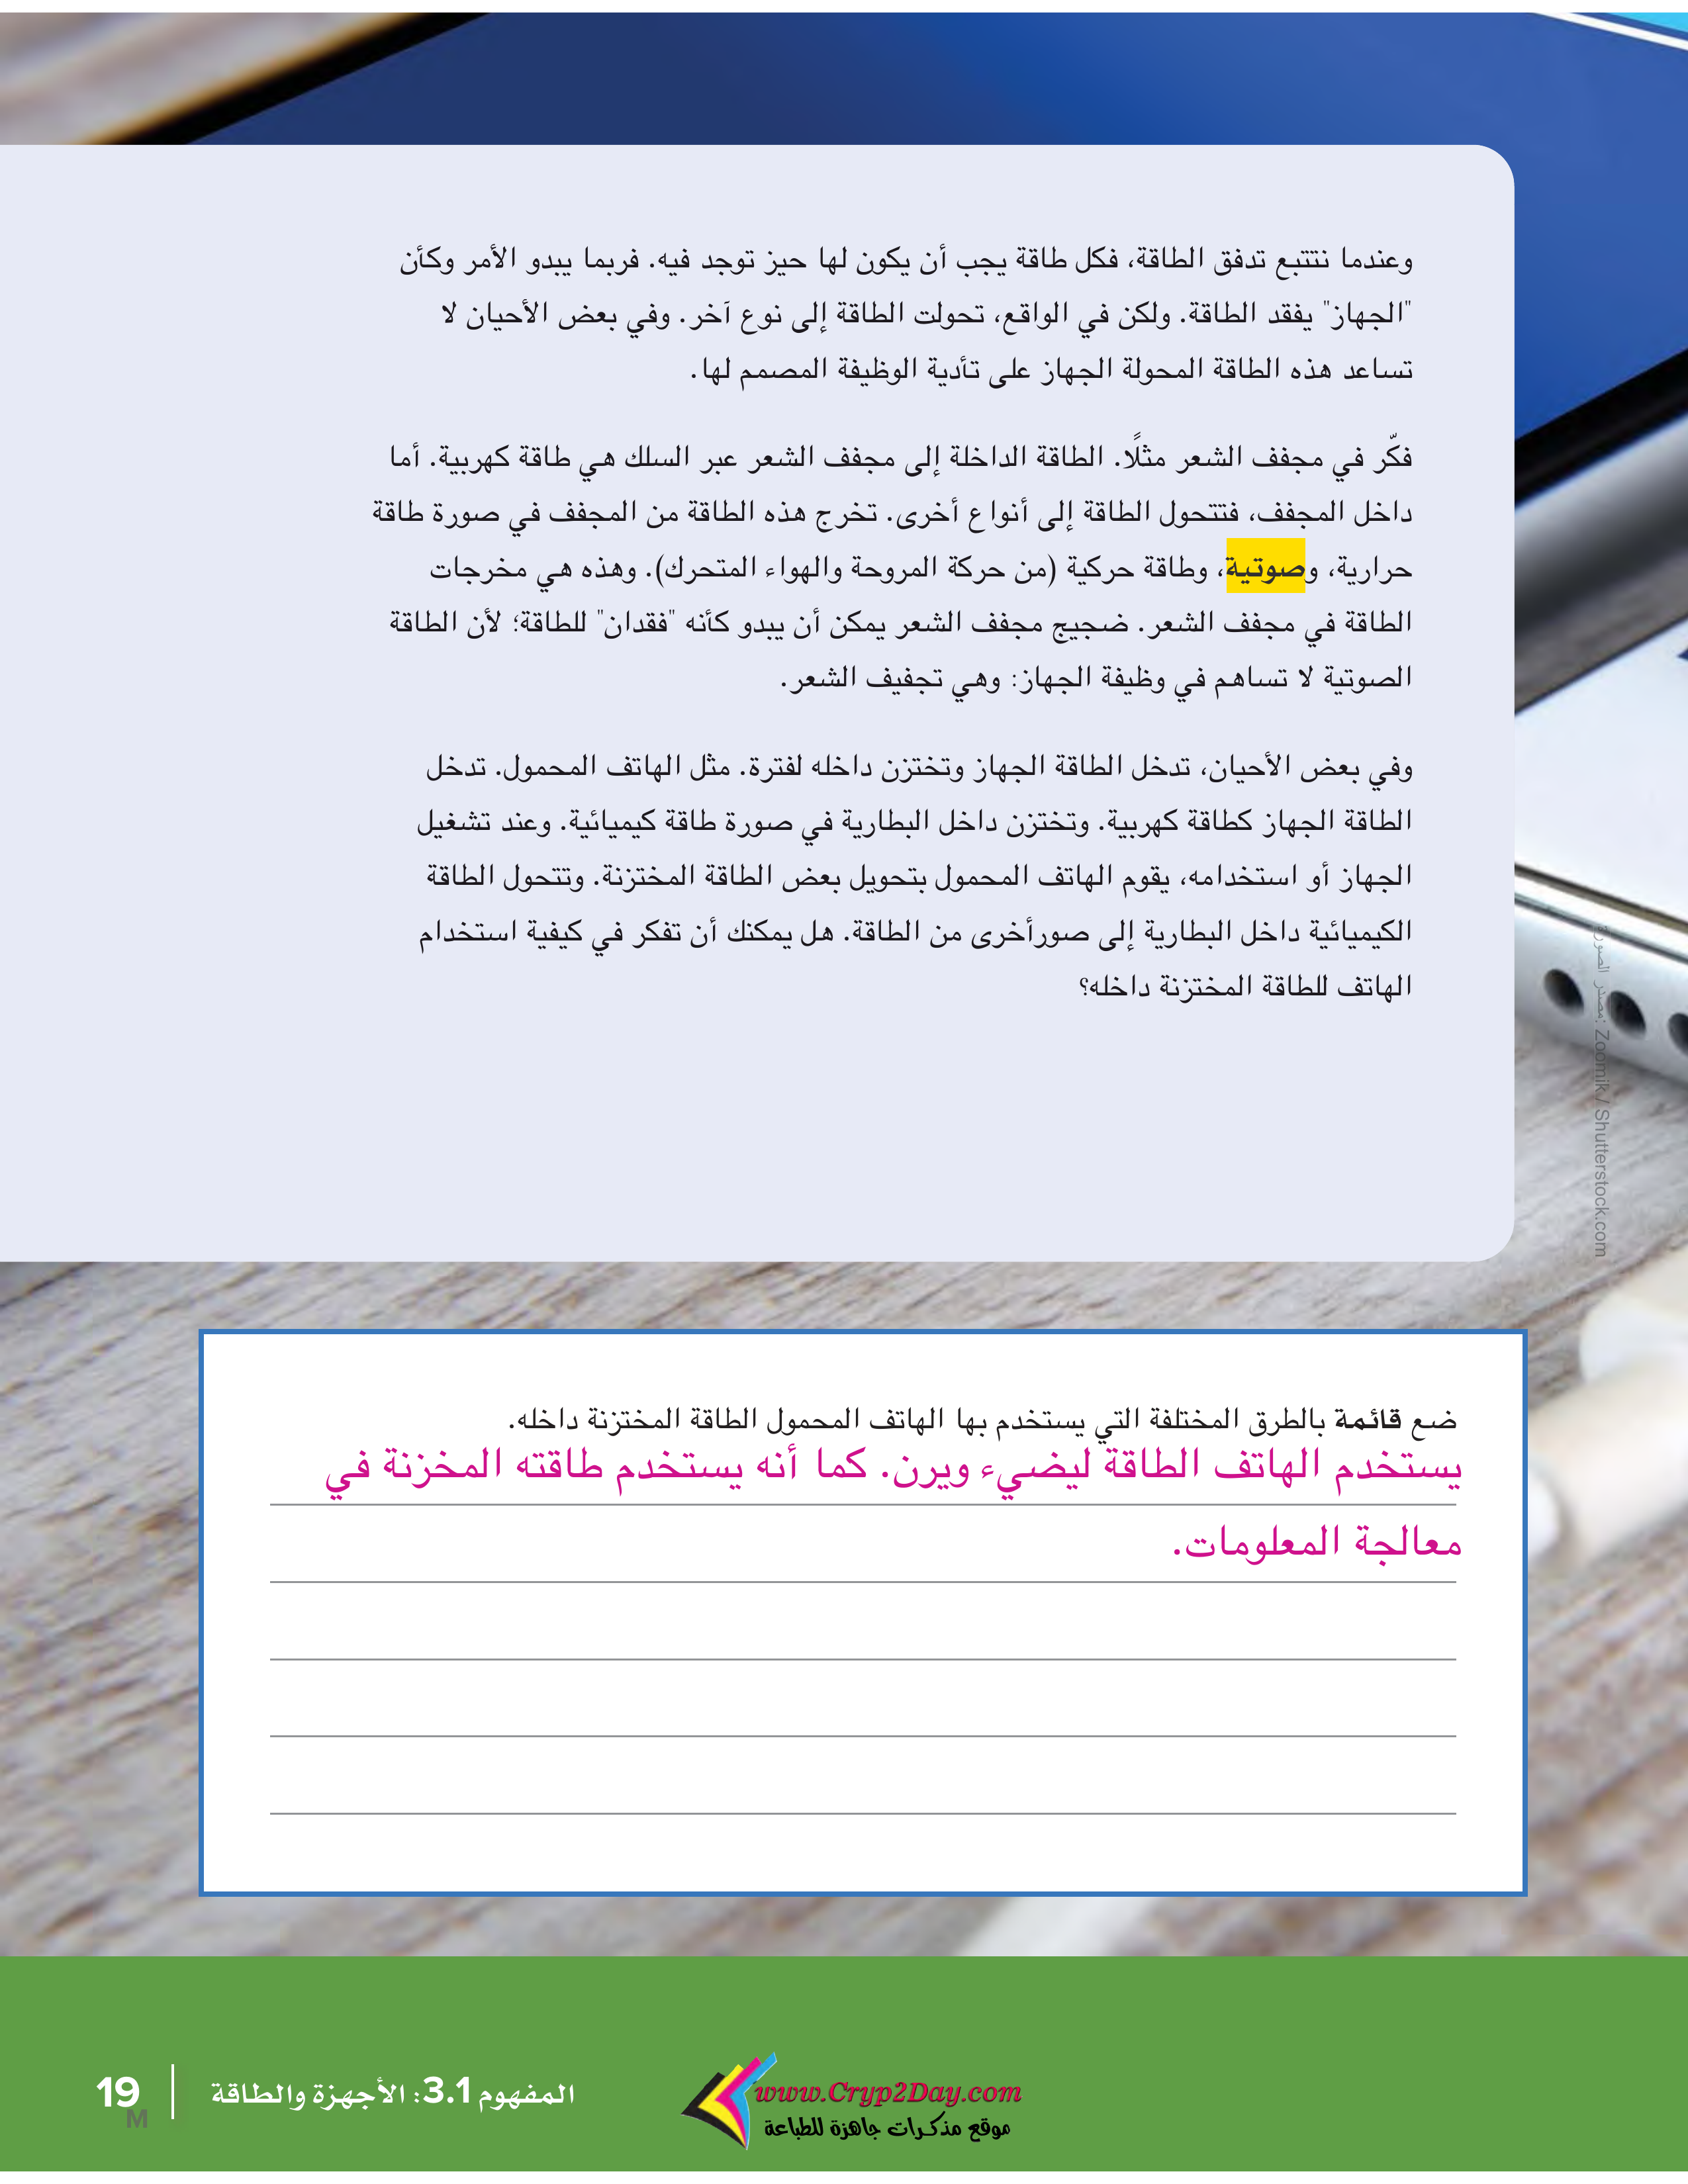 وعندما نتتبع تدفق الطاقة، فكل طاقة يجب أن يكون لها حيز توجد فيه. فربما يبدو الأمر وكأن
"الجهاز" يفقد الطاقة. ولكن في الواقع، تحولت الطاقة إلى نوع آخر. وفي بعض الأحيان لا
تساعد هذه الطاقة المحولة الجهاز على تأدية الوظيفة المصمم لها.
فكّر في مجفف الشعر مثلًا. الطاقة الداخلة إلى مجفف الشعر عبر السلك هي طاقة كهربية. أما
داخل المجفف، فتتحول الطاقة إلى أنواع أخرى. تخرج هذه الطاقة من المجفف في صورة طاقة
حرارية، وصوتية، وطاقة حركية (من حركة المروحة والهواء المتحرك). وهذه هي مخرجات
الطاقة في مجفف الشعر. ضجيج مجفف الشعر يمكن أن يبدو كأنه "فقدان" للطاقة؛ لأن الطاقة
الصوتية لا تساهم في وظيفة الجهاز: وهي تجفيف الشعر.
وفي بعض الأحيان، تدخل الطاقة الجهاز وتختزن داخله لفترة. مثل الهاتف المحمول. تدخل
الطاقة الجهاز كطاقة كهربية. وتختزن داخل البطارية في صورة طاقة كيميائية. وعند تشغيل
الجهاز أو استخدامه، يقوم الهاتف المحمول بتحويل بعض الطاقة المختزنة. وتتحول الطاقة
الكيميائية داخل البطارية إلى صورأخرى من الطاقة. هل يمكنك أن تفكر في كيفية استخدام
الهاتف للطاقة المختزنة داخله؟
مصدر الصورة: Zoomik / Shutterstock.com
ضع قائمة بالطرق المختلفة التي يستخدم بها الهاتف المحمول الطاقة المختزنة داخله.
يستخدم الهاتف الطاقة ليضيء ويرن. كما أنه يستخدم طاقته المخزنة في
معالجة المعلومات.
المفهوم 3.1: الأجهزة والطاقة
19
M
www.Cryp2Day.com
موقع مذكرات جاهزة للطباعة